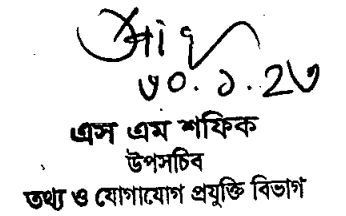 ৩০.১.২৩
এস এম শফিক
উপসচিব
তথ্য ও যোগাযোগ প্রযুক্তি বিভাগ